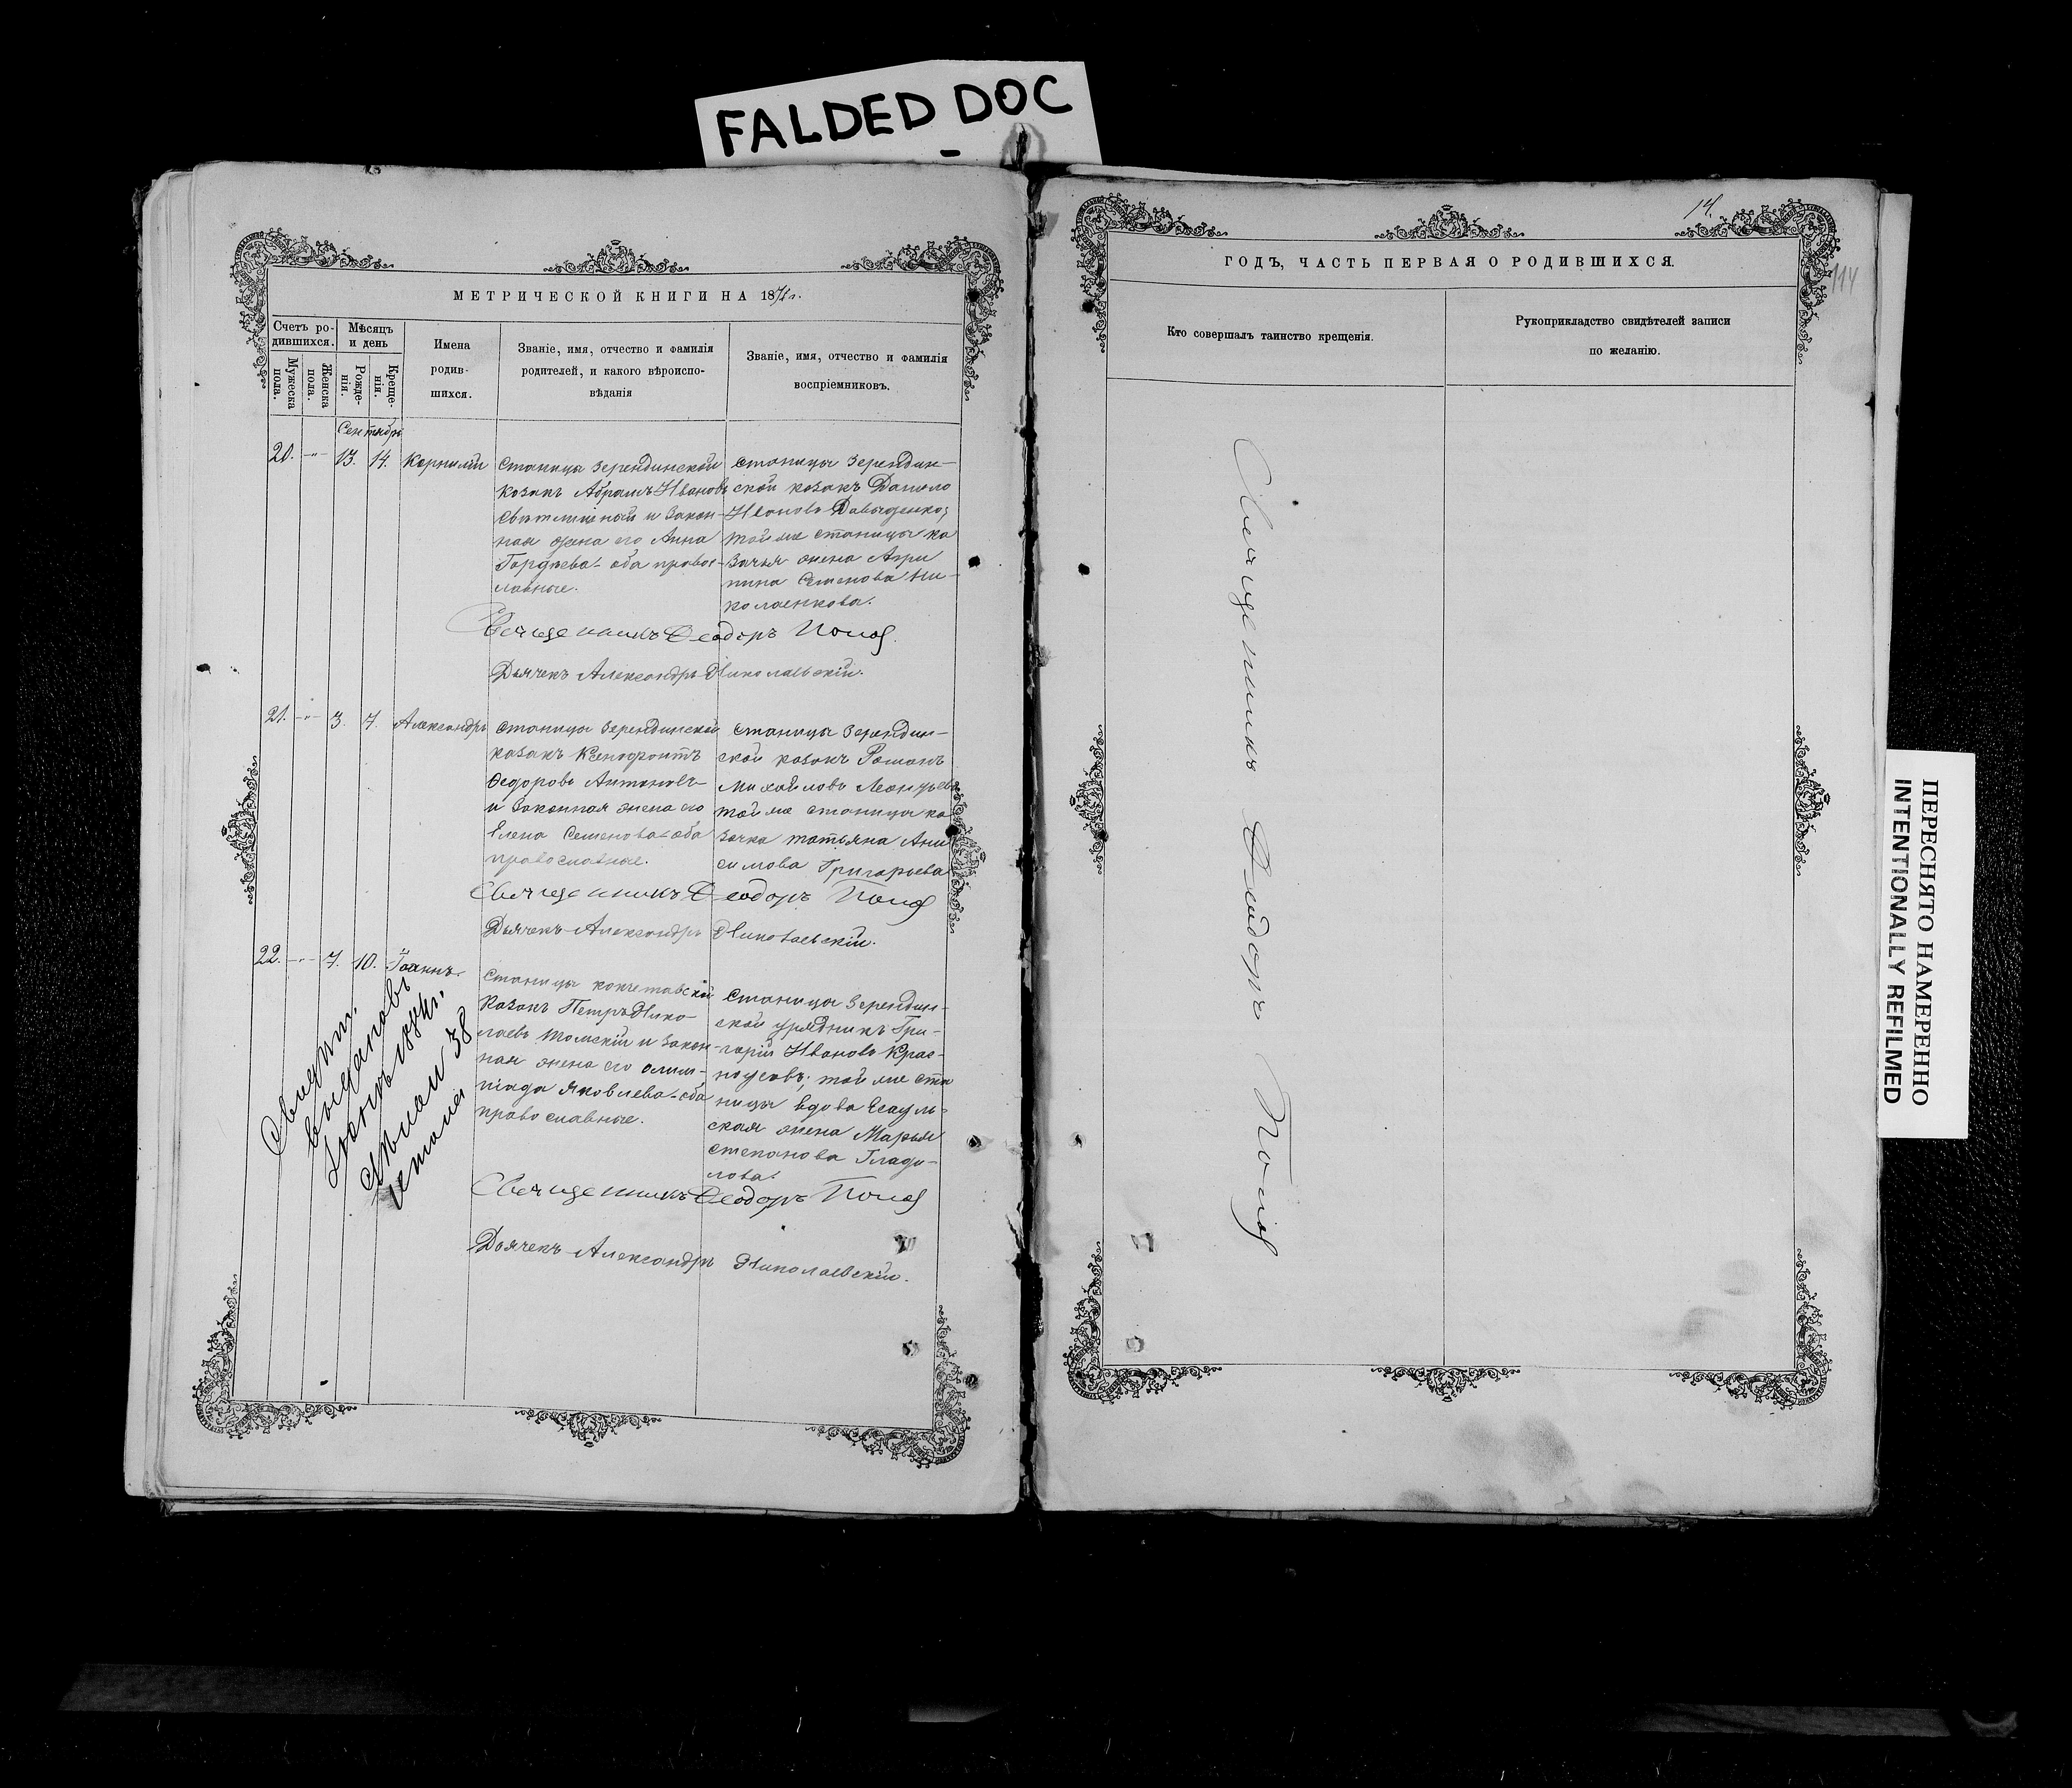 FALDED DOC
МЕТРИЧЕСКОЙ КНИГИ НА 1871 г.
Счетъ ро-
дившихся.
Мужеска
пола.
Женска
пола.
Мѣсяцъ
и день
Рожде-
нія.
Креще-
нія.
Имена
родив-
шихся.
Званіе, имя, отчество и фамилія
родителей, и какого вѣроиспо-
вѣданія
Званіе, имя, отчество и фамилія
воспріемниковъ.
Сентябрь
20. -"- 13. 14. Корнилій
Станицы Зерендинской
козакъ Абрамъ Ивановъ
и закон-
ная жена его Анна
Гордѣева оба правос-
лавные.
Станицы Зерендин-
ской козакъ Данило
Ивановъ Давыденко;
той же станицы ка
зачья жена Агри
пина Семенова Ни-
колаенкова.
Священникъ Ѳеодоръ Попов
Дьячекъ Александръ Николаевскій.
21. -"- 3. 7. Александръ
Станицы Зерендинской
казакъ Ксенофонтъ
Ѳедоровъ Антоновъ
и законная жена его
Елена Семенова оба
православные.
Станицы Зерендин-
ской козакъ Романъ
Михайловъ Леонтьевъ
той же станицы ка
зачка татьяна Ани
симова Григорьева
Священникъ Ѳеодоръ Попов
Дьячекъ Александръ Николаевскій.
22. -"- 7. 10. Іоаннъ.
Станицы кокчетавской
Казакъ Петръ Нико-
лаевъ Томскій и закон-
ная жена его олим-
піада Яковлева оба
православные.
Станицы Зерендин-
ской урядникъ Гри-
горій Ивановъ Крас-
ноусовъ; той же ста
ницы вдова Есауль-
ская жена Марья
степанова Глади-
лова.
Священникъ Ѳеодоръ Попов
Дьячекъ Александръ Николаевскій.
14.
114
ГОДЪ, ЧАСТЬ ПЕРВАЯ О РОДИВШИХСЯ.
Кто совершалъ таинство крещенія.
Рукоприкладство свидѣтелей записи
по желанію.
Священникъ Ѳеодоръ Попов
ПЕРЕСНЯТО НАМЕРЕННО
INTENTIONALLY REFILMED